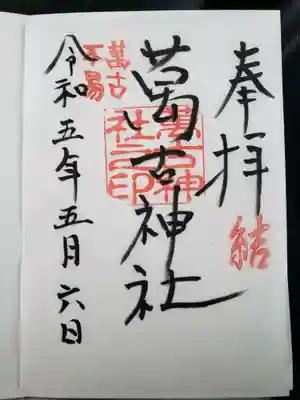 奉拝
結
萬古神社
萬古神社之印
萬古
不易
令和五年五月六日